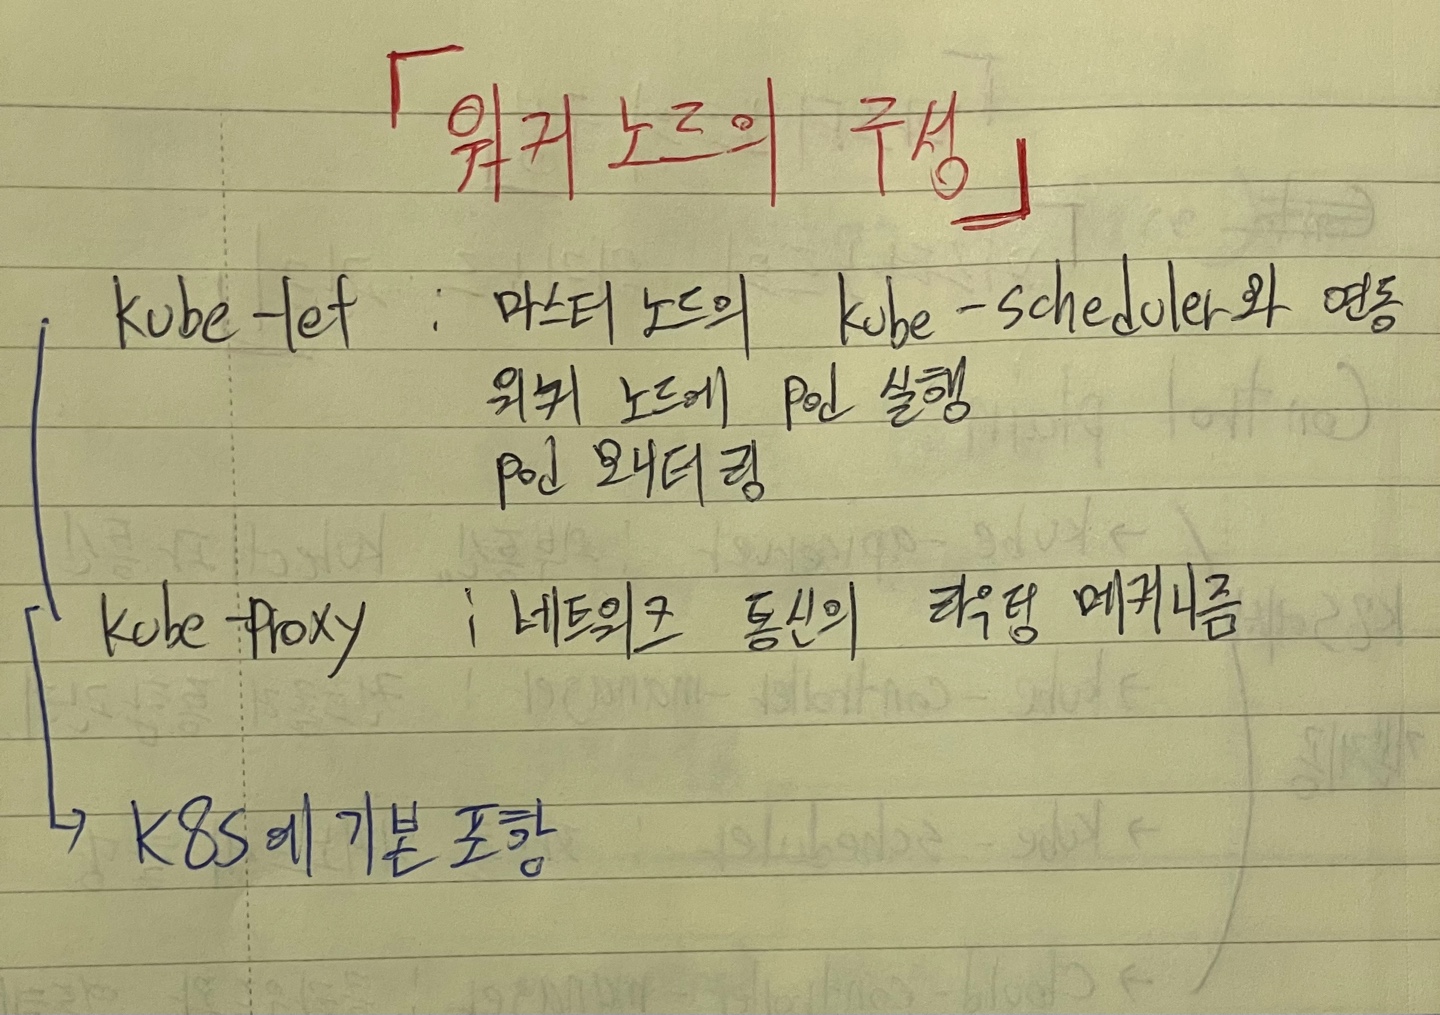 「워커 노드의 구성」
kube-let : 마스터 노드의 kube-scheduler와 연동
워커 노드에 pod 실행
pod 모니터링
kube-proxy : 네트워크 통신의 라우팅 메커니즘
→ K8S에 기본 포함